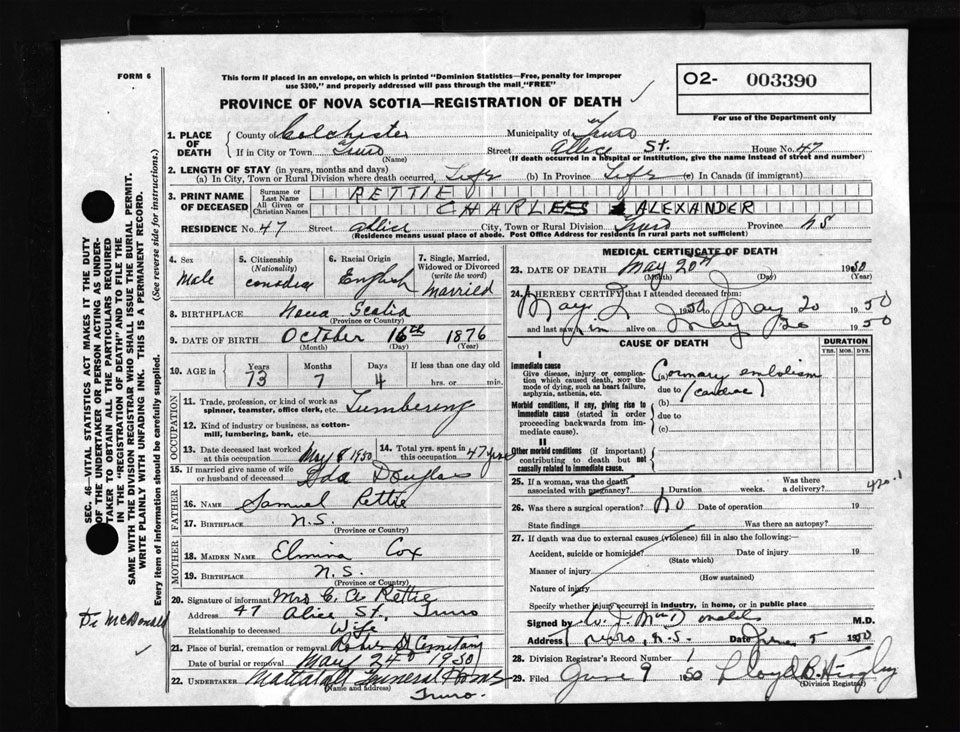 FORM 6
This form if placed in an envelope, on which is printed "Dominion Statistics—Free, penalty for improper
use $300," and properly addressed will pass through the mail "FREE"
PROVINCE OF NOVA SCOTIA—REGISTRATION OF DEATH
O2- 003390
For use of the Department only
1. PLACE OF DEATH
County of Colchester Municipality of Truro
If in City or Town Truro Street Allice St. House No. 47
(Name) (If death occurred in a hospital or institution, give the name instead of street and number)
2. LENGTH OF STAY (in years, months and days)
(a) In City, Town or Rural Division where death occurred Life (b) In Province Life (c) In Canada (if immigrant)
3. PRINT NAME OF DECEASED
Surname or Last Name RETTIE
All Given or Christian Names CHARLES ALEXANDER
RESIDENCE No. 47 Street Allice City, Town or Rural Division Truro Province N S
(Residence means usual place of abode. Post Office Address for residents in rural parts not sufficient)
4. Sex Male
5. Citizenship (Nationality) Canadian
6. Racial Origin English
7. Single, Married, Widowed or Divorced (write the word) Married
8. BIRTHPLACE Nova Scotia
(Province or Country)
9. DATE OF BIRTH October 16th 1876
(Month) (Day) (Year)
10. AGE in Years 73 Months 7 Days 4 If less than one day old hrs. or min.
OCCUPATION
11. Trade, profession, or kind of work as spinner, teamster, office clerk, etc. Lumbering
12. Kind of industry or business, as cotton-mill, lumbering, bank, etc.
13. Date deceased last worked at this occupation May 8 1950
14. Total yrs. spent in this occupation 47 years
15. If married give name of wife or husband of deceased Ida Douglas
FATHER
16. NAME Samuel Rettie
17. BIRTHPLACE N.S.
(Province or Country)
MOTHER
18. MAIDEN NAME Elmina Cox
19. BIRTHPLACE N.S.
(Province or Country)
20. Signature of informant Mrs C. A. Rettie
Address 47 Alice St, Truro
Relationship to deceased Wife
21. Place of burial, cremation or removal Robie St Cemetary
Date of burial or removal May 24th 1950
22. UNDERTAKER Mattatall Funeral Home
(Name and address) Truro.
MEDICAL CERTIFICATE OF DEATH
23. DATE OF DEATH May 20th 1950
(Month) (Day) (Year)
24. I HEREBY CERTIFY that I attended deceased from:
May 1950 to May 20 1950
and last saw him alive on May 20 1950
CAUSE OF DEATH
DURATION
YRS. MOS. DYS.
I
Immediate cause
Give disease, injury or complication which caused death, not the mode of dying, such as heart failure, asphyxia, asthenia, etc.
(a) Coronary embolism
due to (cardiac)
Morbid conditions, if any, giving rise to immediate cause (stated in order proceeding backwards from immediate cause).
(b)
due to
(c)
II
Other morbid conditions (if important) contributing to death but not causally related to immediate cause.
25. If a woman, was the death associated with pregnancy? Duration weeks. Was there a delivery?
420.1
26. Was there a surgical operation? No Date of operation 19
State findings Was there an autopsy?
27. If death was due to external causes (violence) fill in also the following:—
Accident, suicide or homicide? Date of injury 19
(State which)
Manner of injury
(How sustained)
Nature of injury
Specify whether injury occurred in industry, in home, or in public place
Signed by MacDonald M.D.
Address Truro N.S. Date June 5 1950
28. Division Registrar's Record Number
29. Filed June 9 1950 Lloyd B.
(Division Registrar)
SEC. 46—VITAL STATISTICS ACT MAKES IT THE DUTY
OF THE UNDERTAKER OR PERSON ACTING AS UNDER-
TAKER TO OBTAIN ALL THE PARTICULARS REQUIRED
IN THE "REGISTRATION OF DEATH" AND TO FILE THE
SAME WITH THE DIVISION REGISTRAR WHO SHALL ISSUE THE BURIAL PERMIT.
WRITE PLAINLY WITH UNFADING INK. THIS IS A PERMANENT RECORD.
Every item of information should be carefully supplied. (See reverse side for instructions.)
Dr McDonald